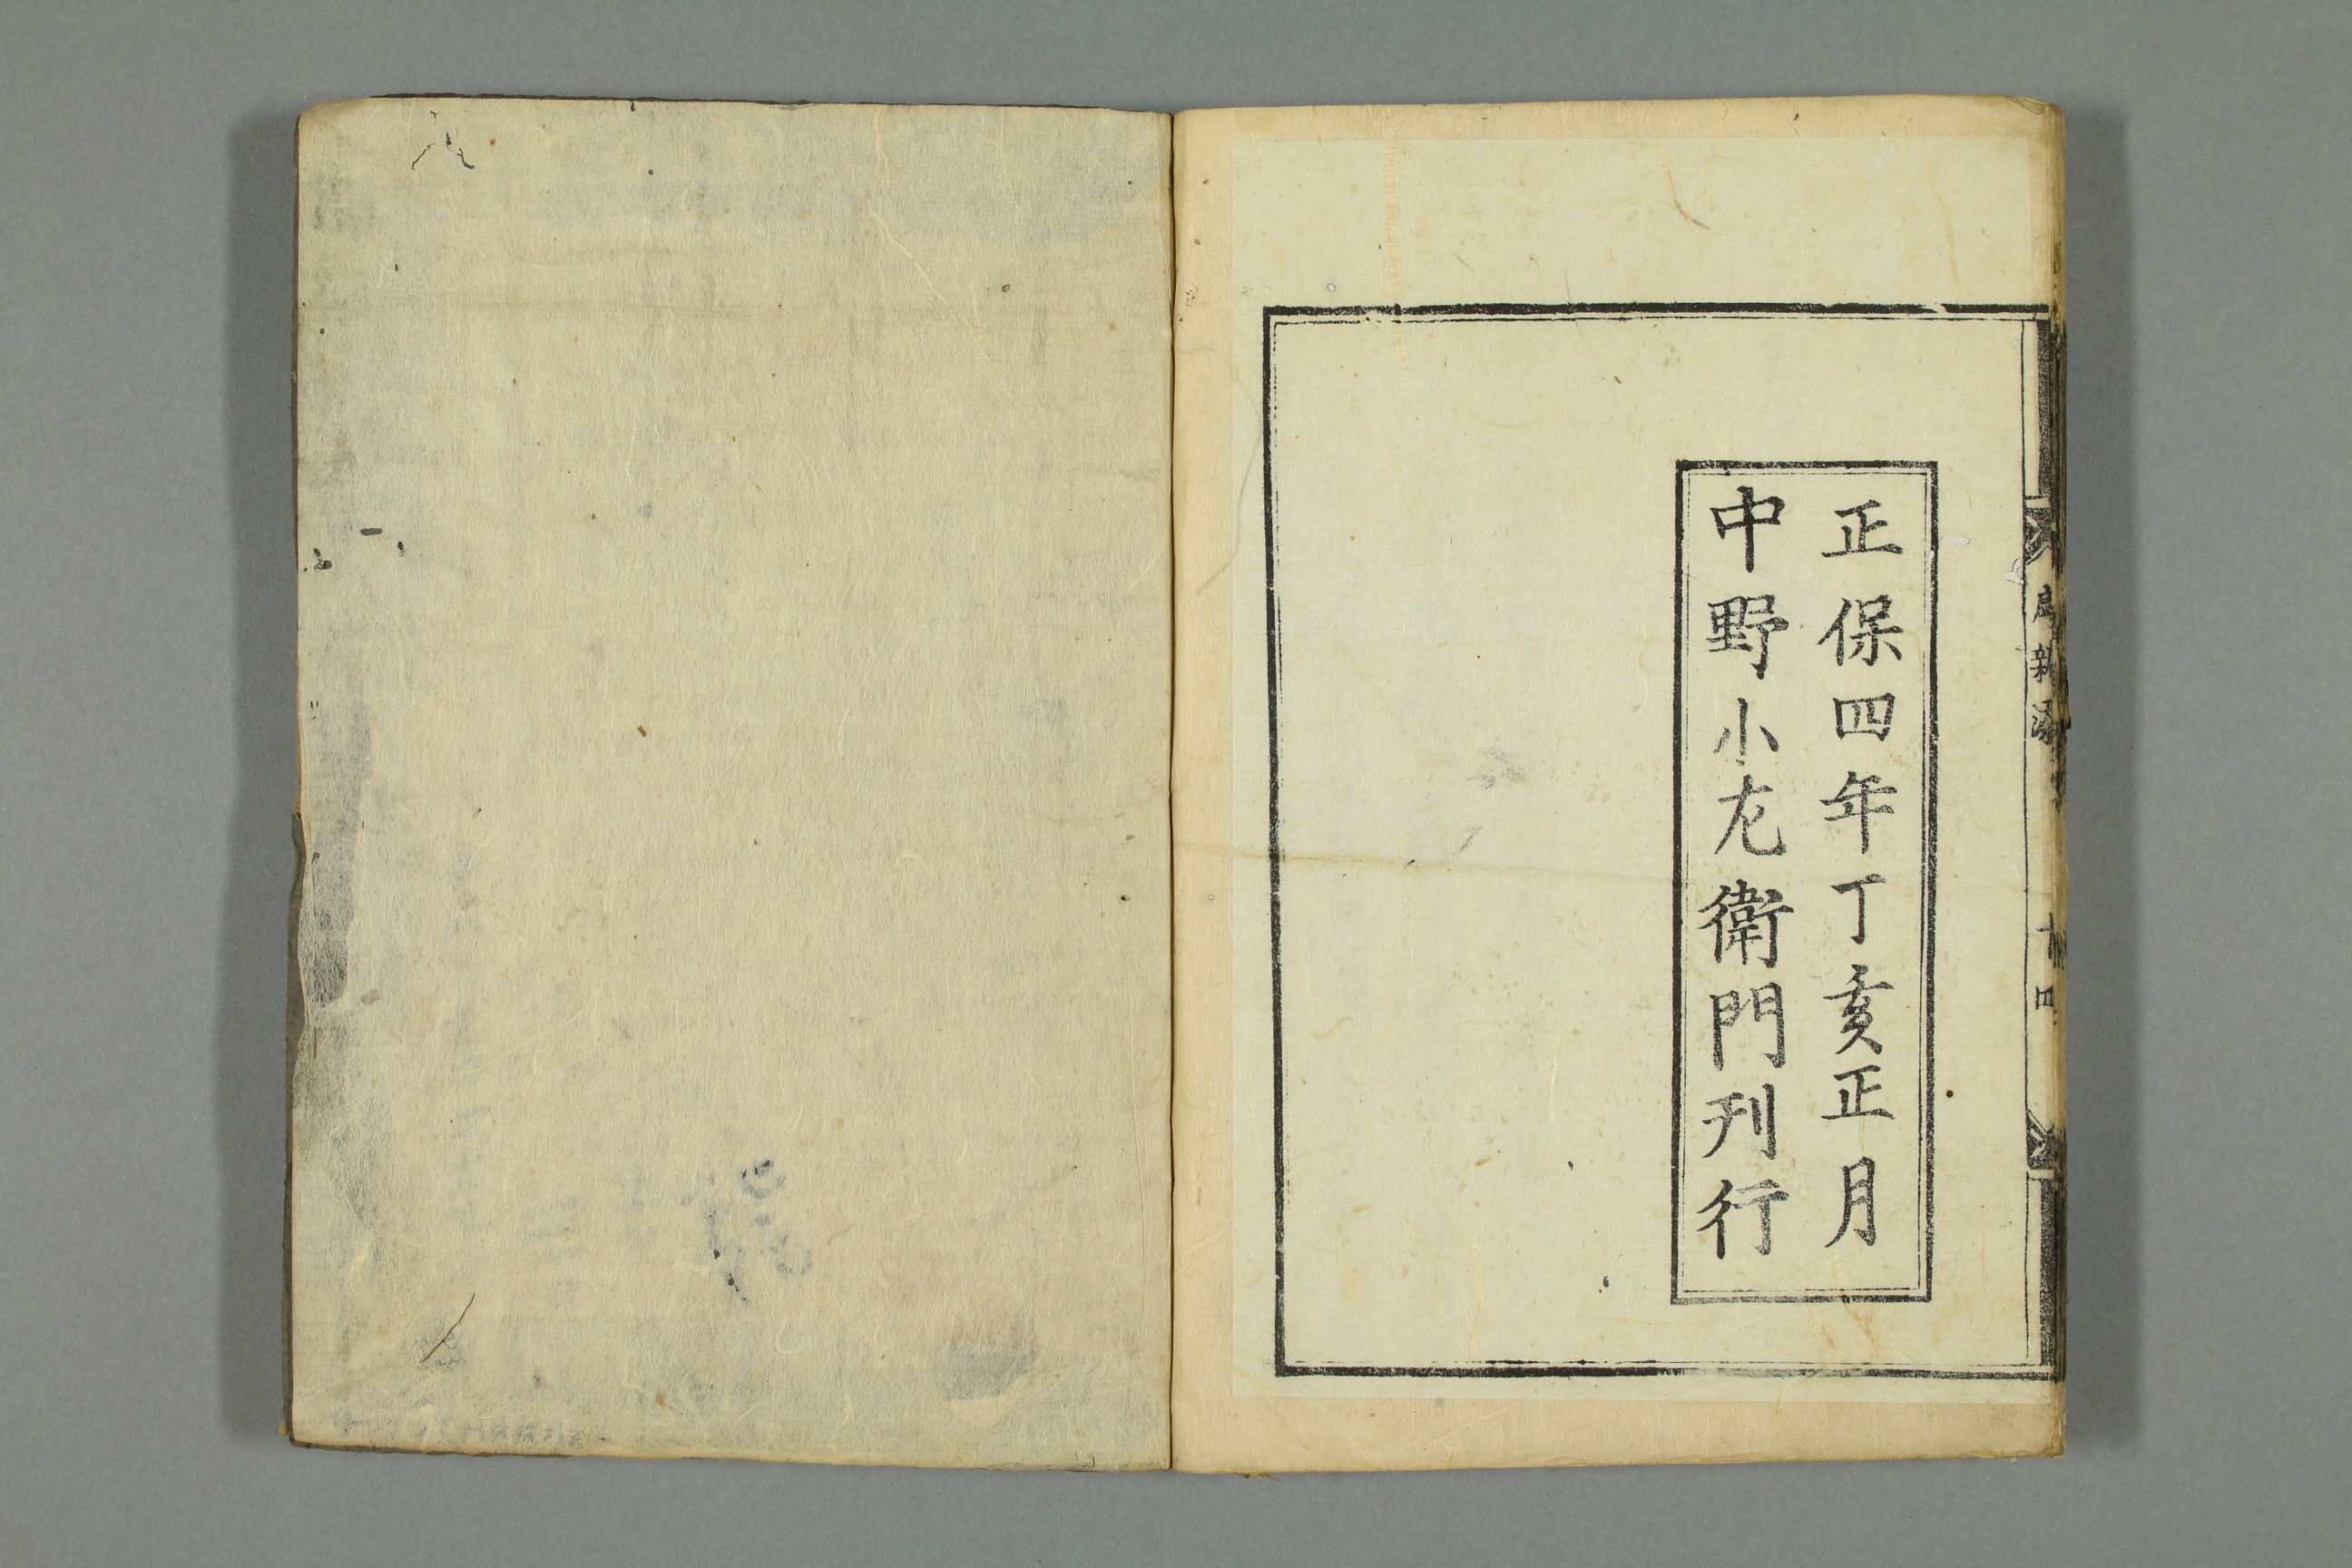 正保四年丁亥正月
中野小左衛門刊行